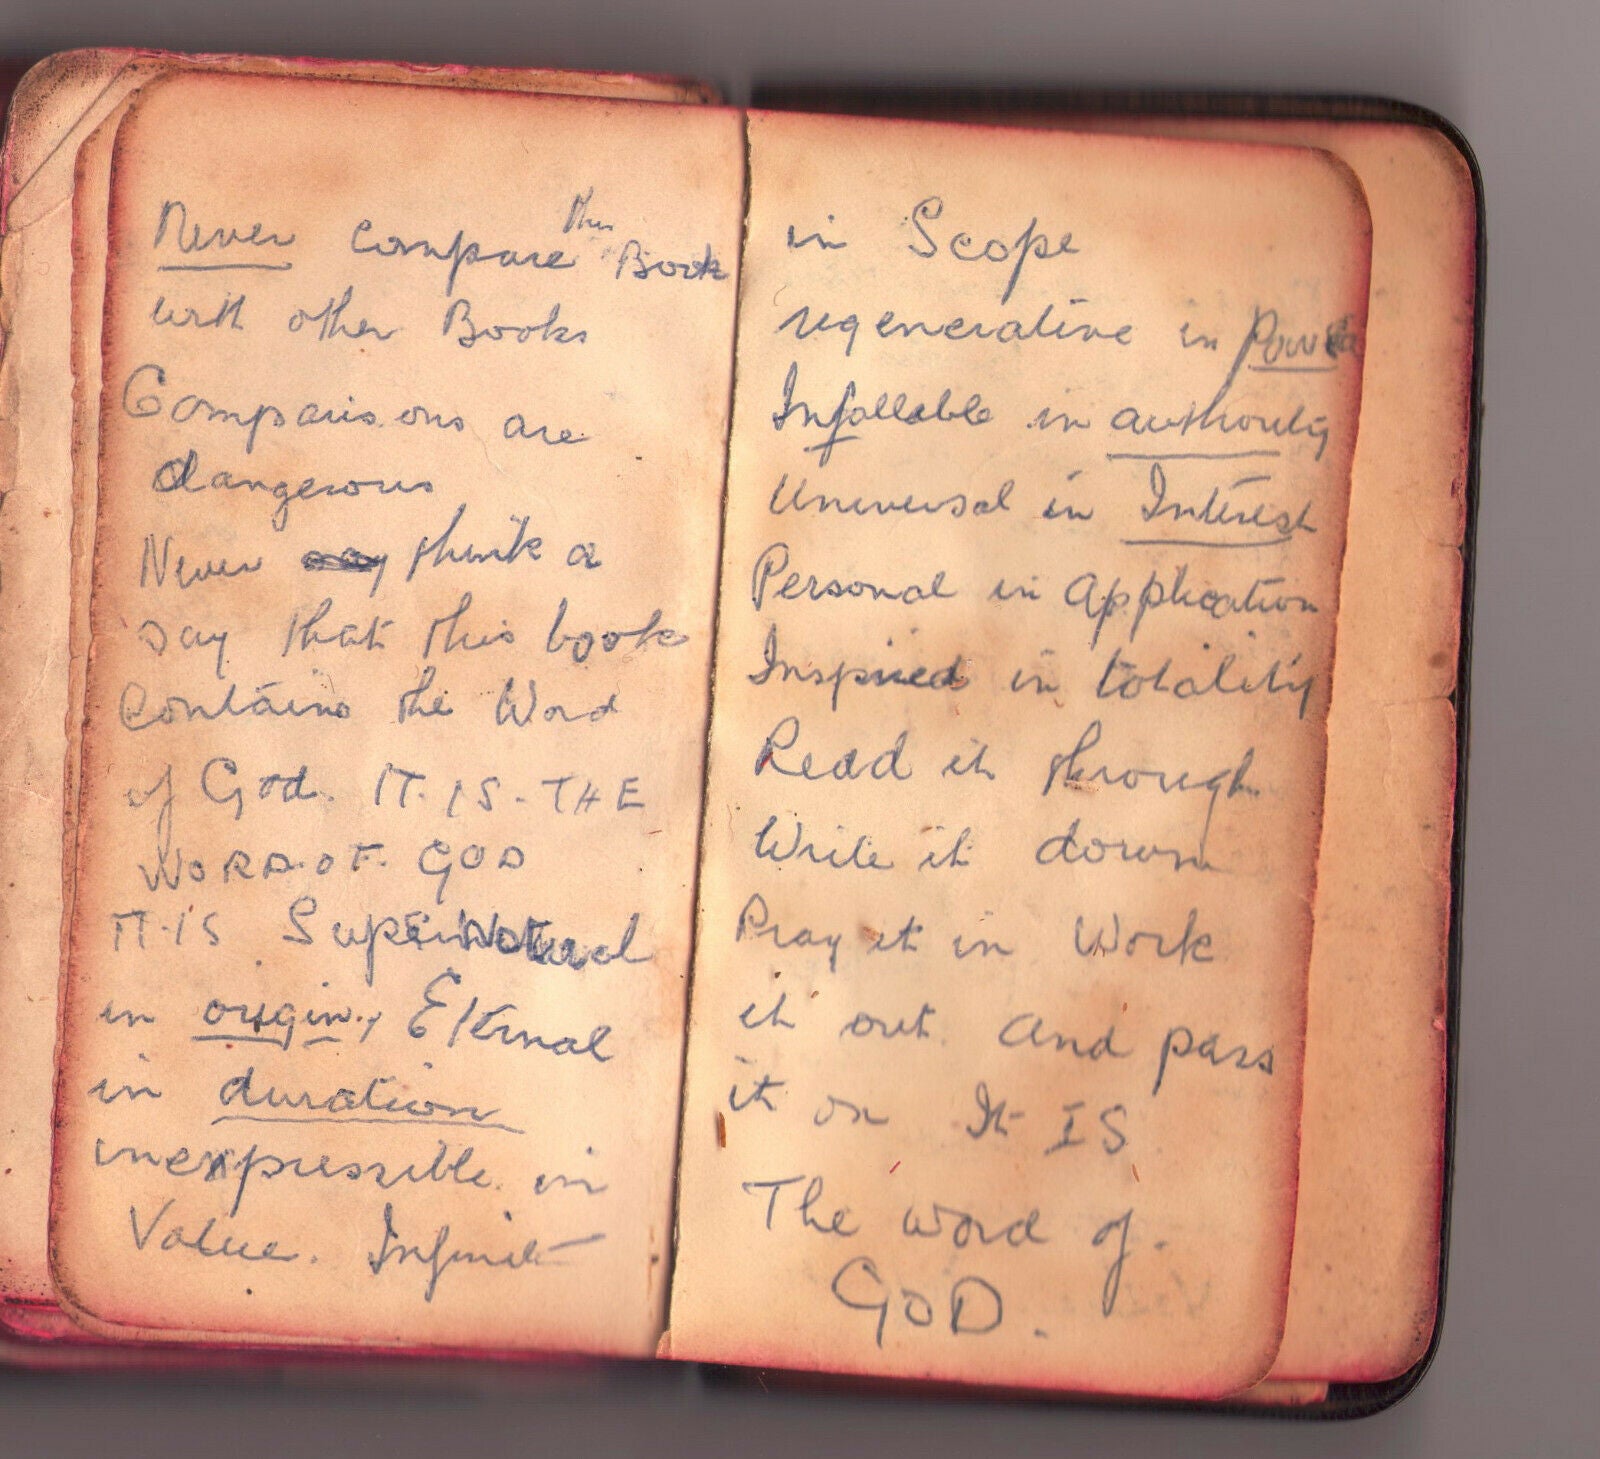 Never compare this Book
with other Books
Comparisons are
dangerous
Never think or
say that this book
Contains the Word
of God. IT. IS - THE
WORD. OF. GOD
IT. IS Supernatural
in origin, Eternal
in duration
inexpressible in
Value. Infinite
in Scope
regenerative in Power
Infallable in authority
Universal in Interest
Personal in Application
Inspired in totality
Read it through
Write it down
Pray it in Work
it out and pass
it on It IS
The word of.
GOD.